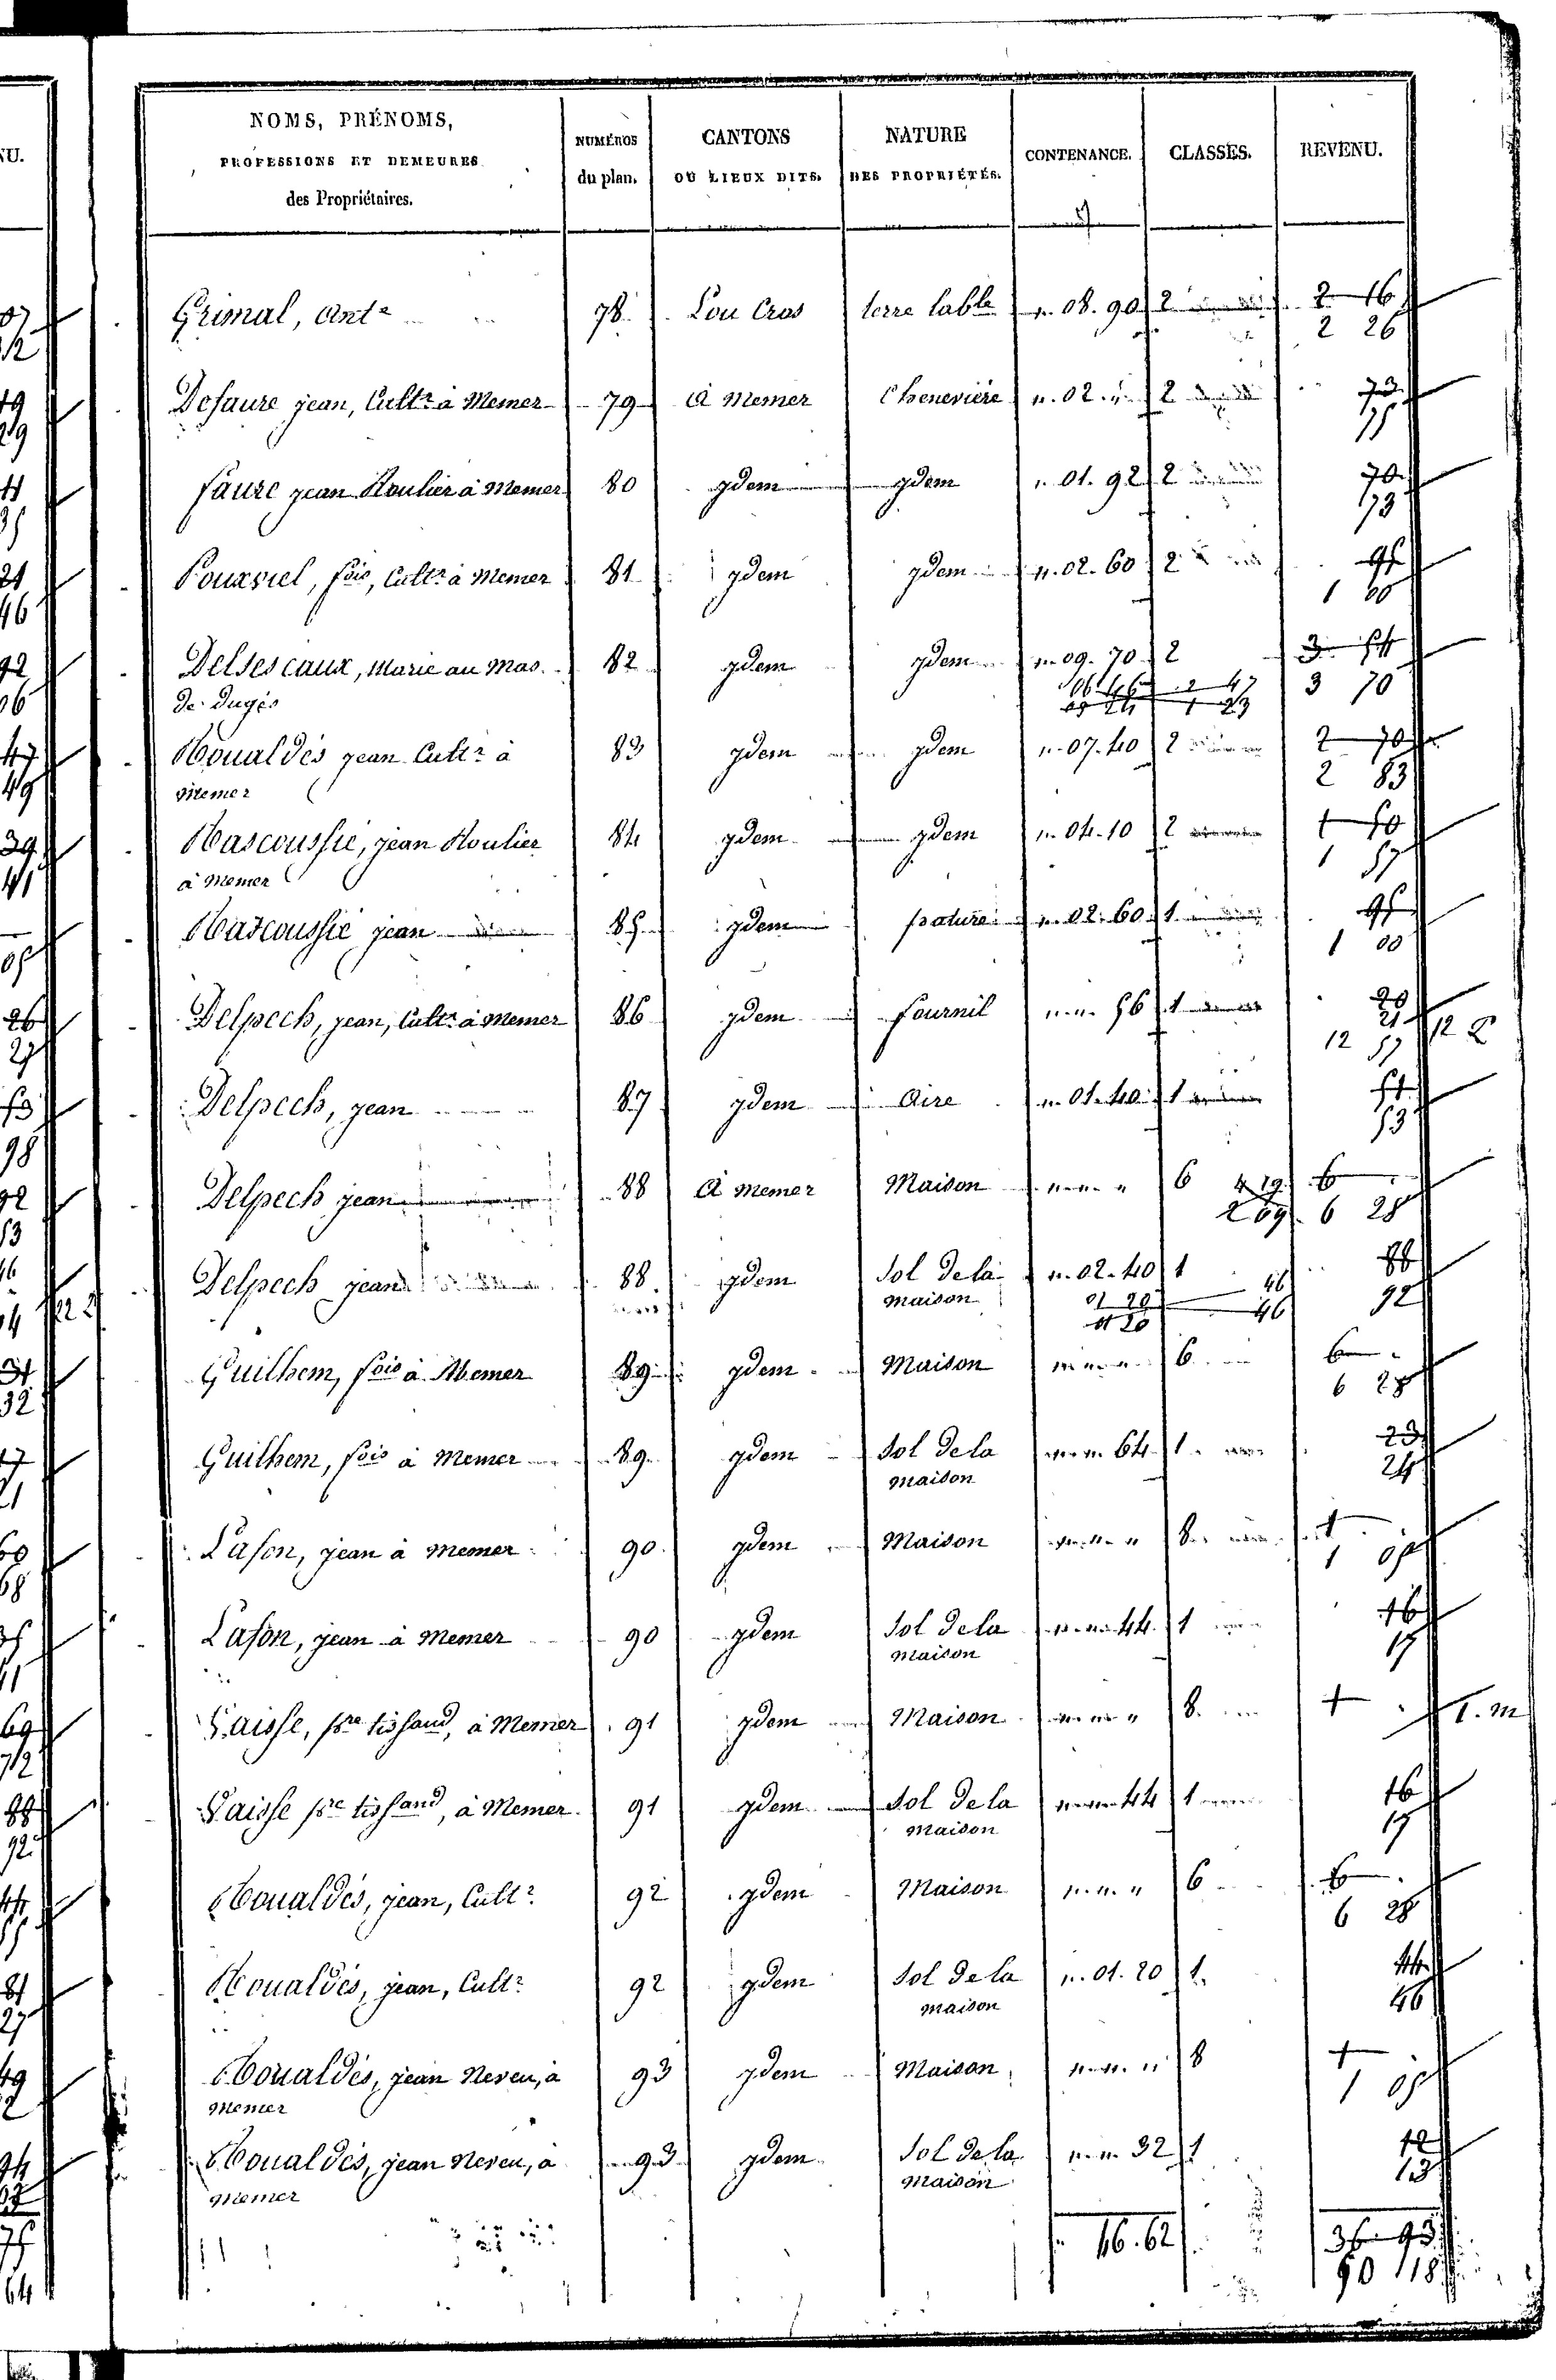 NOMS, PRÉNOMS, PROFESSIONS ET DEMEURES des Propriétaires. NUMÉROS du plan. CANTONS OU LIEUX DITS. NATURE DES PROPRIÉTÉS. CONTENANCE. CLASSES. REVENU.
Grimal, antᵉ 78 Lou Cros terre labᵇˡᵉ ". 08. 90 2 2 16
2 26
Defaure jean, Cultʳ à Memer 79 à Memer Chenevière ". 02. " 2 73
75
faure jean Roulier à Memer 80 ydem ydem ". 01. 92 2 70
73
Pourxiel, fois, Cultʳ à Memer 81 ydem ydem ". 02. 60 2 95
1 00
Delsescaux, Marie au Mas 82 ydem ydem ". 09. 70 2 3 54
de dugés 06 46 2 47 3 70
03 24 1 23
Roualdés jean Cultʳ à 83 ydem ydem ". 07. 40 2 2 70
Memer 2 83
Mascoussié, jean Roulier 84 ydem ydem ". 04. 10 2 1 50
à Memer 1 57
Mascoussié jean 85 ydem pature ". 02. 60 1 95
1 00
Delpech, jean, Cultʳ à Memer 86 ydem fournil ". ". 56 1 20
21
12 57 12 2
Delpech, jean 87 ydem Aire ". 01. 40 1 51
53
Delpech jean 88 à Memer Maison ". ". " 6 4 19 6
2 09 6 28
Delpech jean 88 ydem Sol de la ". 02. 40 1 46 88
maison 01 20 46 92
01 20
Guilhem, fois à Memer 89 ydem Maison ". ". " 6 6
6 28
Guilhem, fois à Memer 89 ydem Sol de la ". ". 64 1 23
maison 24
Lafon, jean à Memer 90 ydem Maison ". ". " 8 1
1 05
Lafon, jean à Memer 90 ydem Sol de la ". ". 44 1 16
maison 17
Vaisse, pʳᵉ tissand, à Memer 91 ydem Maison ". ". " 8 1 1. m
Vaisse pʳᵉ tissand, à Memer 91 ydem Sol de la ". ". 44 1 16
maison 17
Roualdés, jean, Cultʳ 92 ydem Maison ". ". " 6 6
6 28
Roualdés, jean, Cultʳ 92 ydem Sol de la ". 01. 20 1 44
maison 46
Roualdés, jean Neveu, à 93 ydem Maison ". ". " 8 1
Memer 1 05
Roualdés, jean Neveu, à 93 ydem Sol de la ". ". 32 1 12
Memer maison 13
46. 62 36 93
50 118